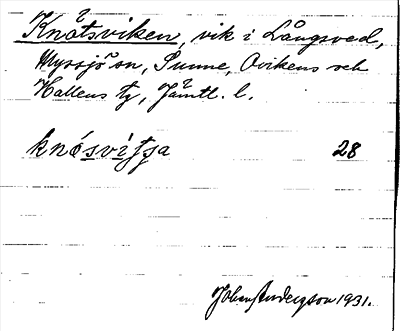 Knåtsviken, vik i Långsved,
Myssjöon, Sunne, Ovikens och
Hallens tg, Jämtl. l.
knósvítja 28
Johan Andersson 1931.